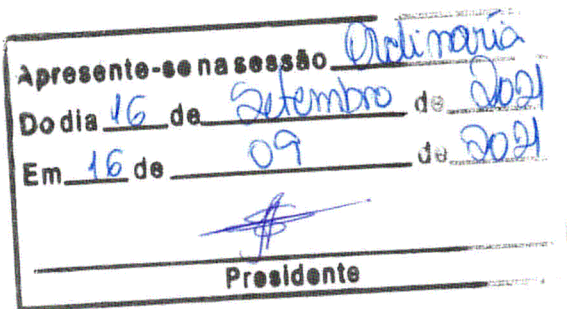 Apresente-se na sessão Ordinaria
Do dia 16 de Setembro de 2021
Em 16 de 09 de 2021
Presidente